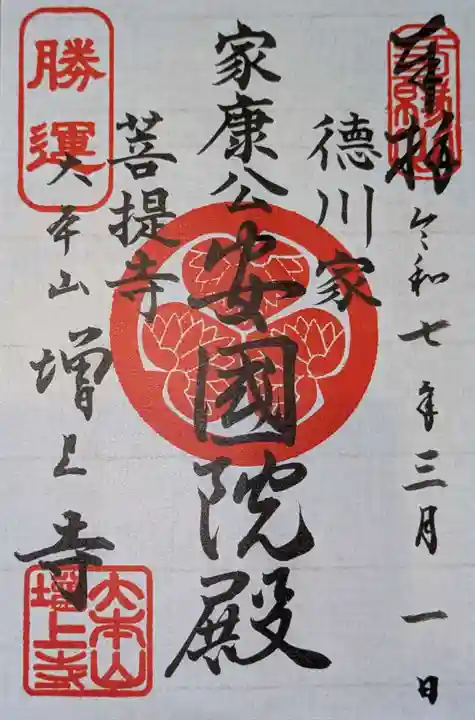 奉拝
令和七年三月一日
徳川家
家康公安國院殿
菩提寺
勝運
大本山増上寺
大本山
増上寺